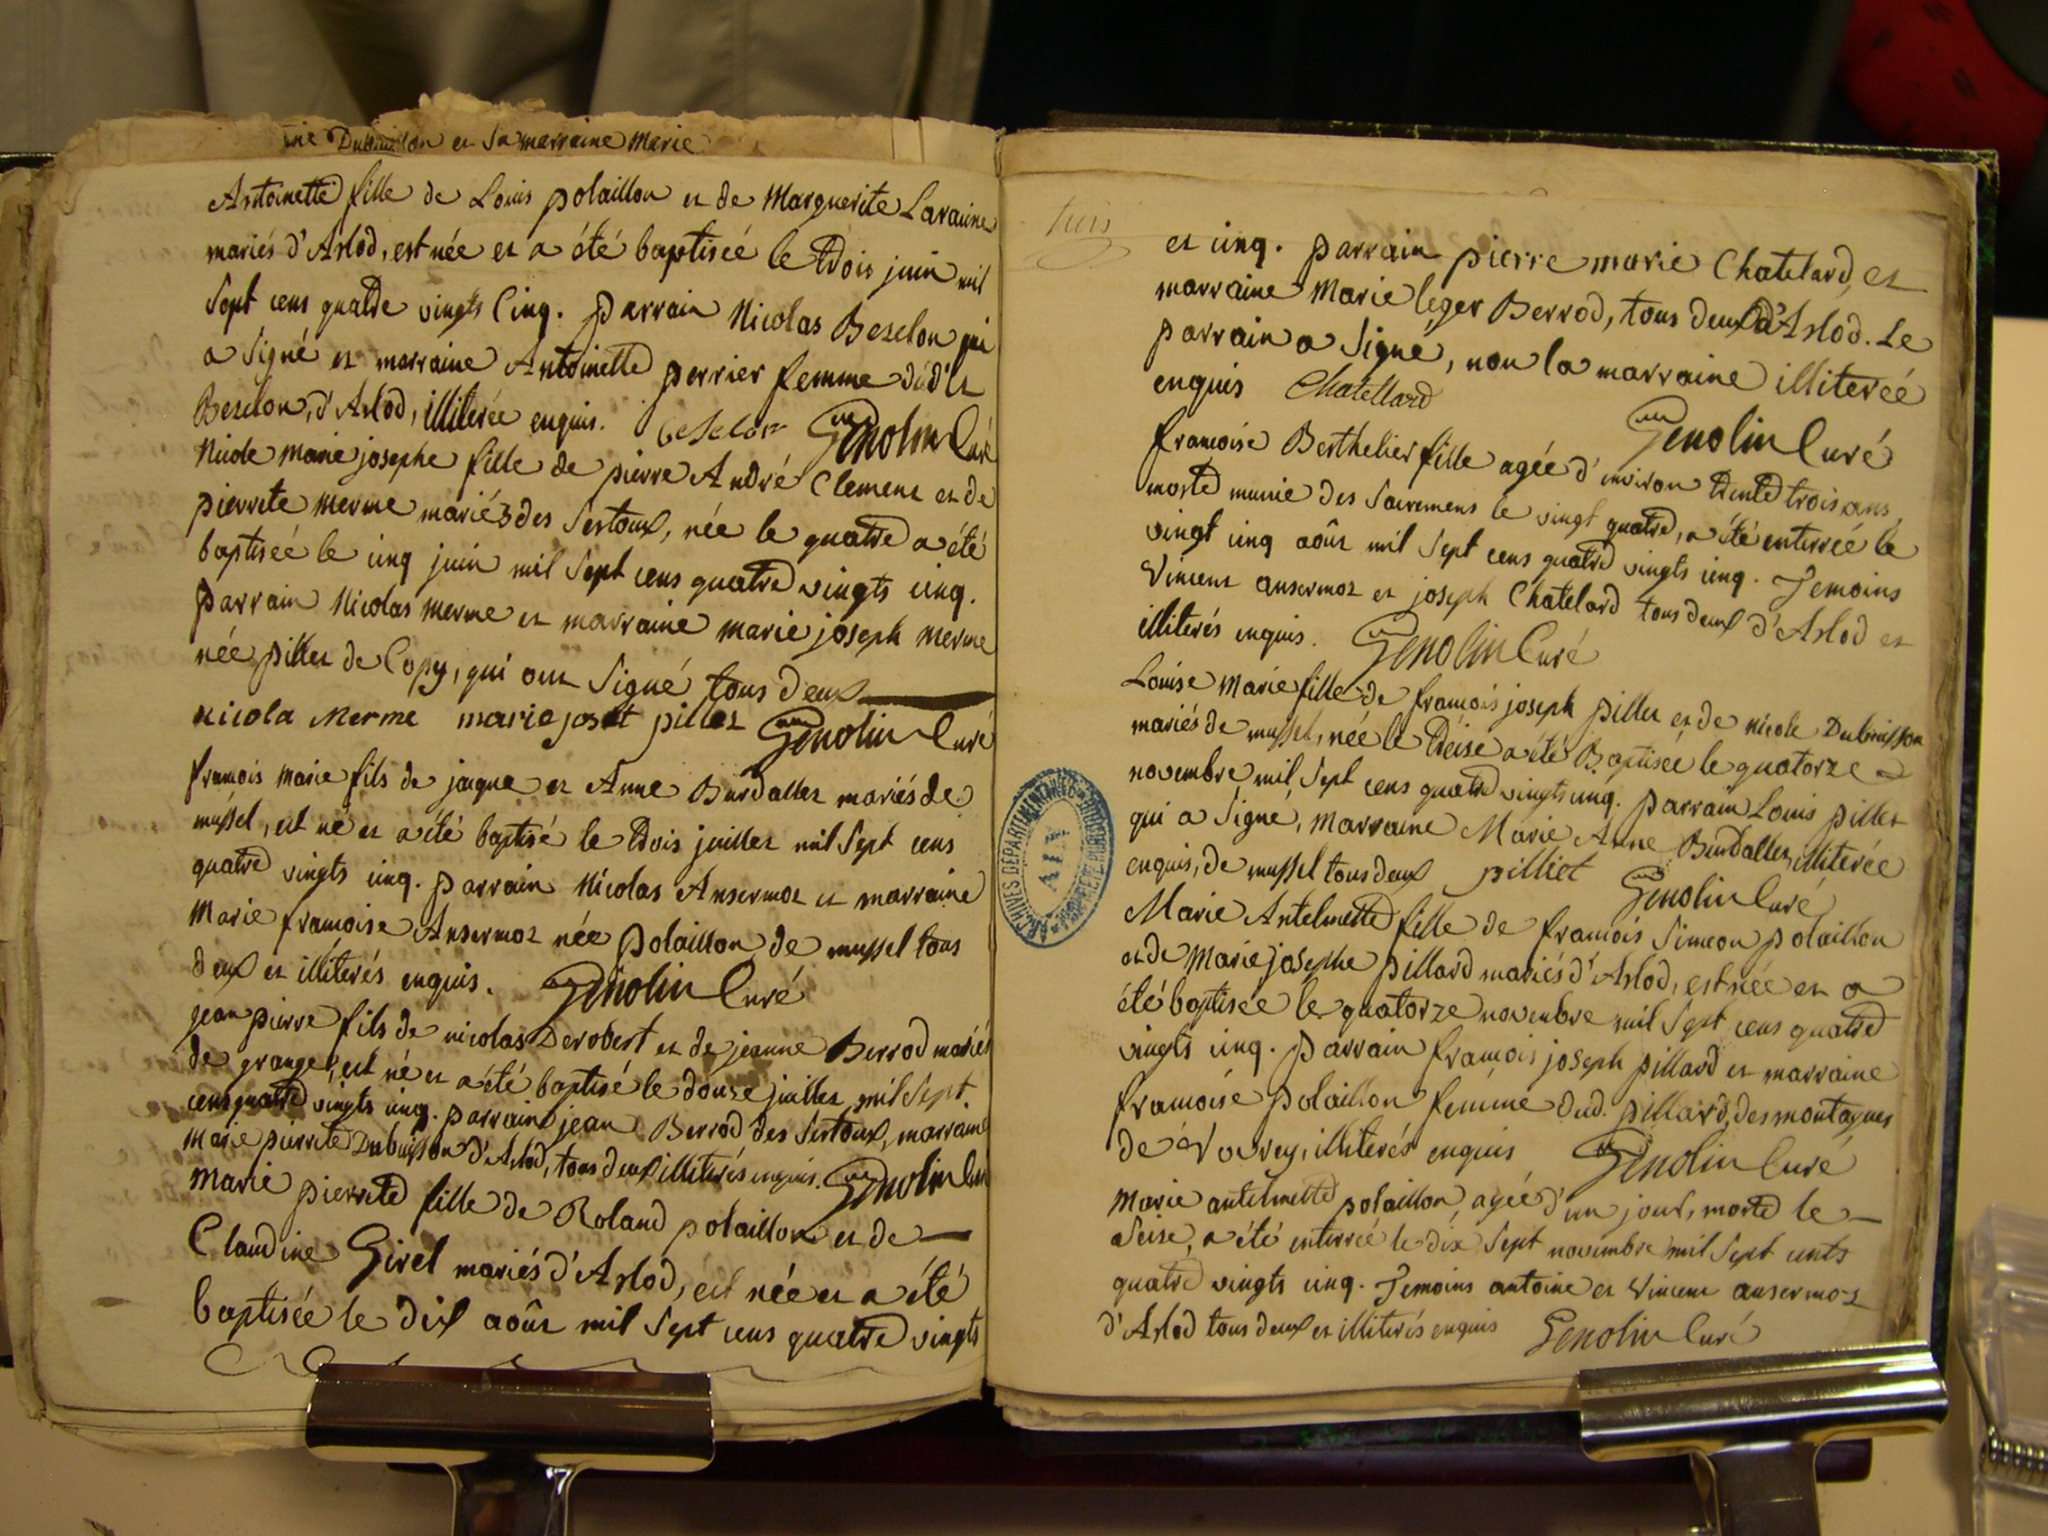 Dubuisson et sa marraine Marie
Antoinette fille de Louis polaillon et de Marguerite Laraine
mariés d'Arlod, est née et a été baptiseé le trois juin mil
sept cens quatre vingts Cinq. parrain Nicolas Bezelon qui
a signé et marraine Antoinette perrier femme dud't
Bezelon, d'Arlod, illiterée enquis. beselon Genolin Curé
Nicole Marie josephe fille de pierre André Clement et de
pierrete Merme mariés des Sertoux, née le quatre a été
baptiseé le cinq juin mil sept cens quatre vingts cinq.
parrain Nicolas Merme et marraine marie joseph Merme
née pillet de Copy, qui ont signé tous deux
nicola Merme marie joset pillet Genolin Curé
françois Marie fils de jaque et Anne Burdallet mariés de
mussel, est né et a été baptisé le trois juillet mil sept cens
quatre vingts cinq. parrain Nicolas Ansermoz et marraine
Marie françoise Ansermoz née polaillon, de mussel tous
deux et illiterés enquis. Genolin Curé
jean pierre fils de nicolas Derobert et de jeanne Berrod mariés
de grange, est né et a été baptisé le douze juillet mil sept
cens quatre vingts cinq. parrain jean Berrod des Sertoux, marraine
Marie pierrete Dubuisson d'Arlod, tous deux illiterés enquis. Genolin Curé
Marie pierrete fille de Roland polaillon et de
Claudine Girel mariés d'Arlod, est née et a été
baptisée le dix août mil sept cens quatre vingts
et cinq. parrain pierre marie Chatelard, et
marraine Marie leger Berrod, tous deux d'Arlod. Le
parrain a signé, non la marraine illitereé
enquis Chatellard
Genolin Curé
françoise Berthelier fille agée d'environ trente trois ans,
morte munie des sacremens le vingt quatre, a été enterreé le
vingt cinq août mil sept cens quatre vingts cinq. Temoins
Vincent ansermoz et joseph Chatelard tous deux d'Arlod et
illiterés enquis. Genolin Curé
Louise Marie fille de françois joseph pillet et de nicole Dubuisson
mariés de mussel, née le treise a été Baptisée le quatorze
novembre mil sept cens quatre vingts cinq. parrain Louis pillet
qui a signé, Marraine Marie Anne Burdallet illiterée
enquis, de mussel tous deux pilliet Genolin Curé
Marie Antelmette fille de françois Simeon polaillon
et de Marie josephe pillard mariés d'Arlod, est née et a
été baptisée le quatorze novembre mil sept cens quatre
vingts cinq. parrain françois joseph pillard et marraine
françoise polaillon femme dud. pillard, des montagnes
de Vouvrey, illiterés enquis Genolin Curé
Marie antelmette polaillon, agée d'un jour, morte le
seise, a été enterrée le dix sept novembre mil sept cents
quatre vingts cinq. Temoins antoine et Vincent ansermoz
d'Arlod tous deux et illiterés enquis Genolin Curé
ARCHIVES DÉPARTEMENTALES
AIN